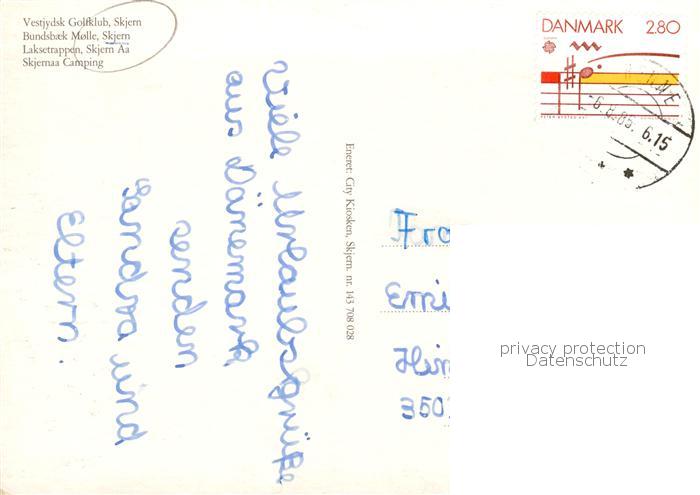 Vestjydsk Golfklub, Skjern
Bundsbæk Mølle, Skjern
Laksetrappen, Skjern Aa
Skjernaa Camping
DANMARK 2.80
-6.8.85. 6.15
Viele Urlaubsgrüße
aus Dänemark
senden
Sandra und
Eltern.
Eneret: City Kiosken, Skjern. nr. 143 708 028
Fra
Emi
Hin
350
privacy protection
Datenschutz